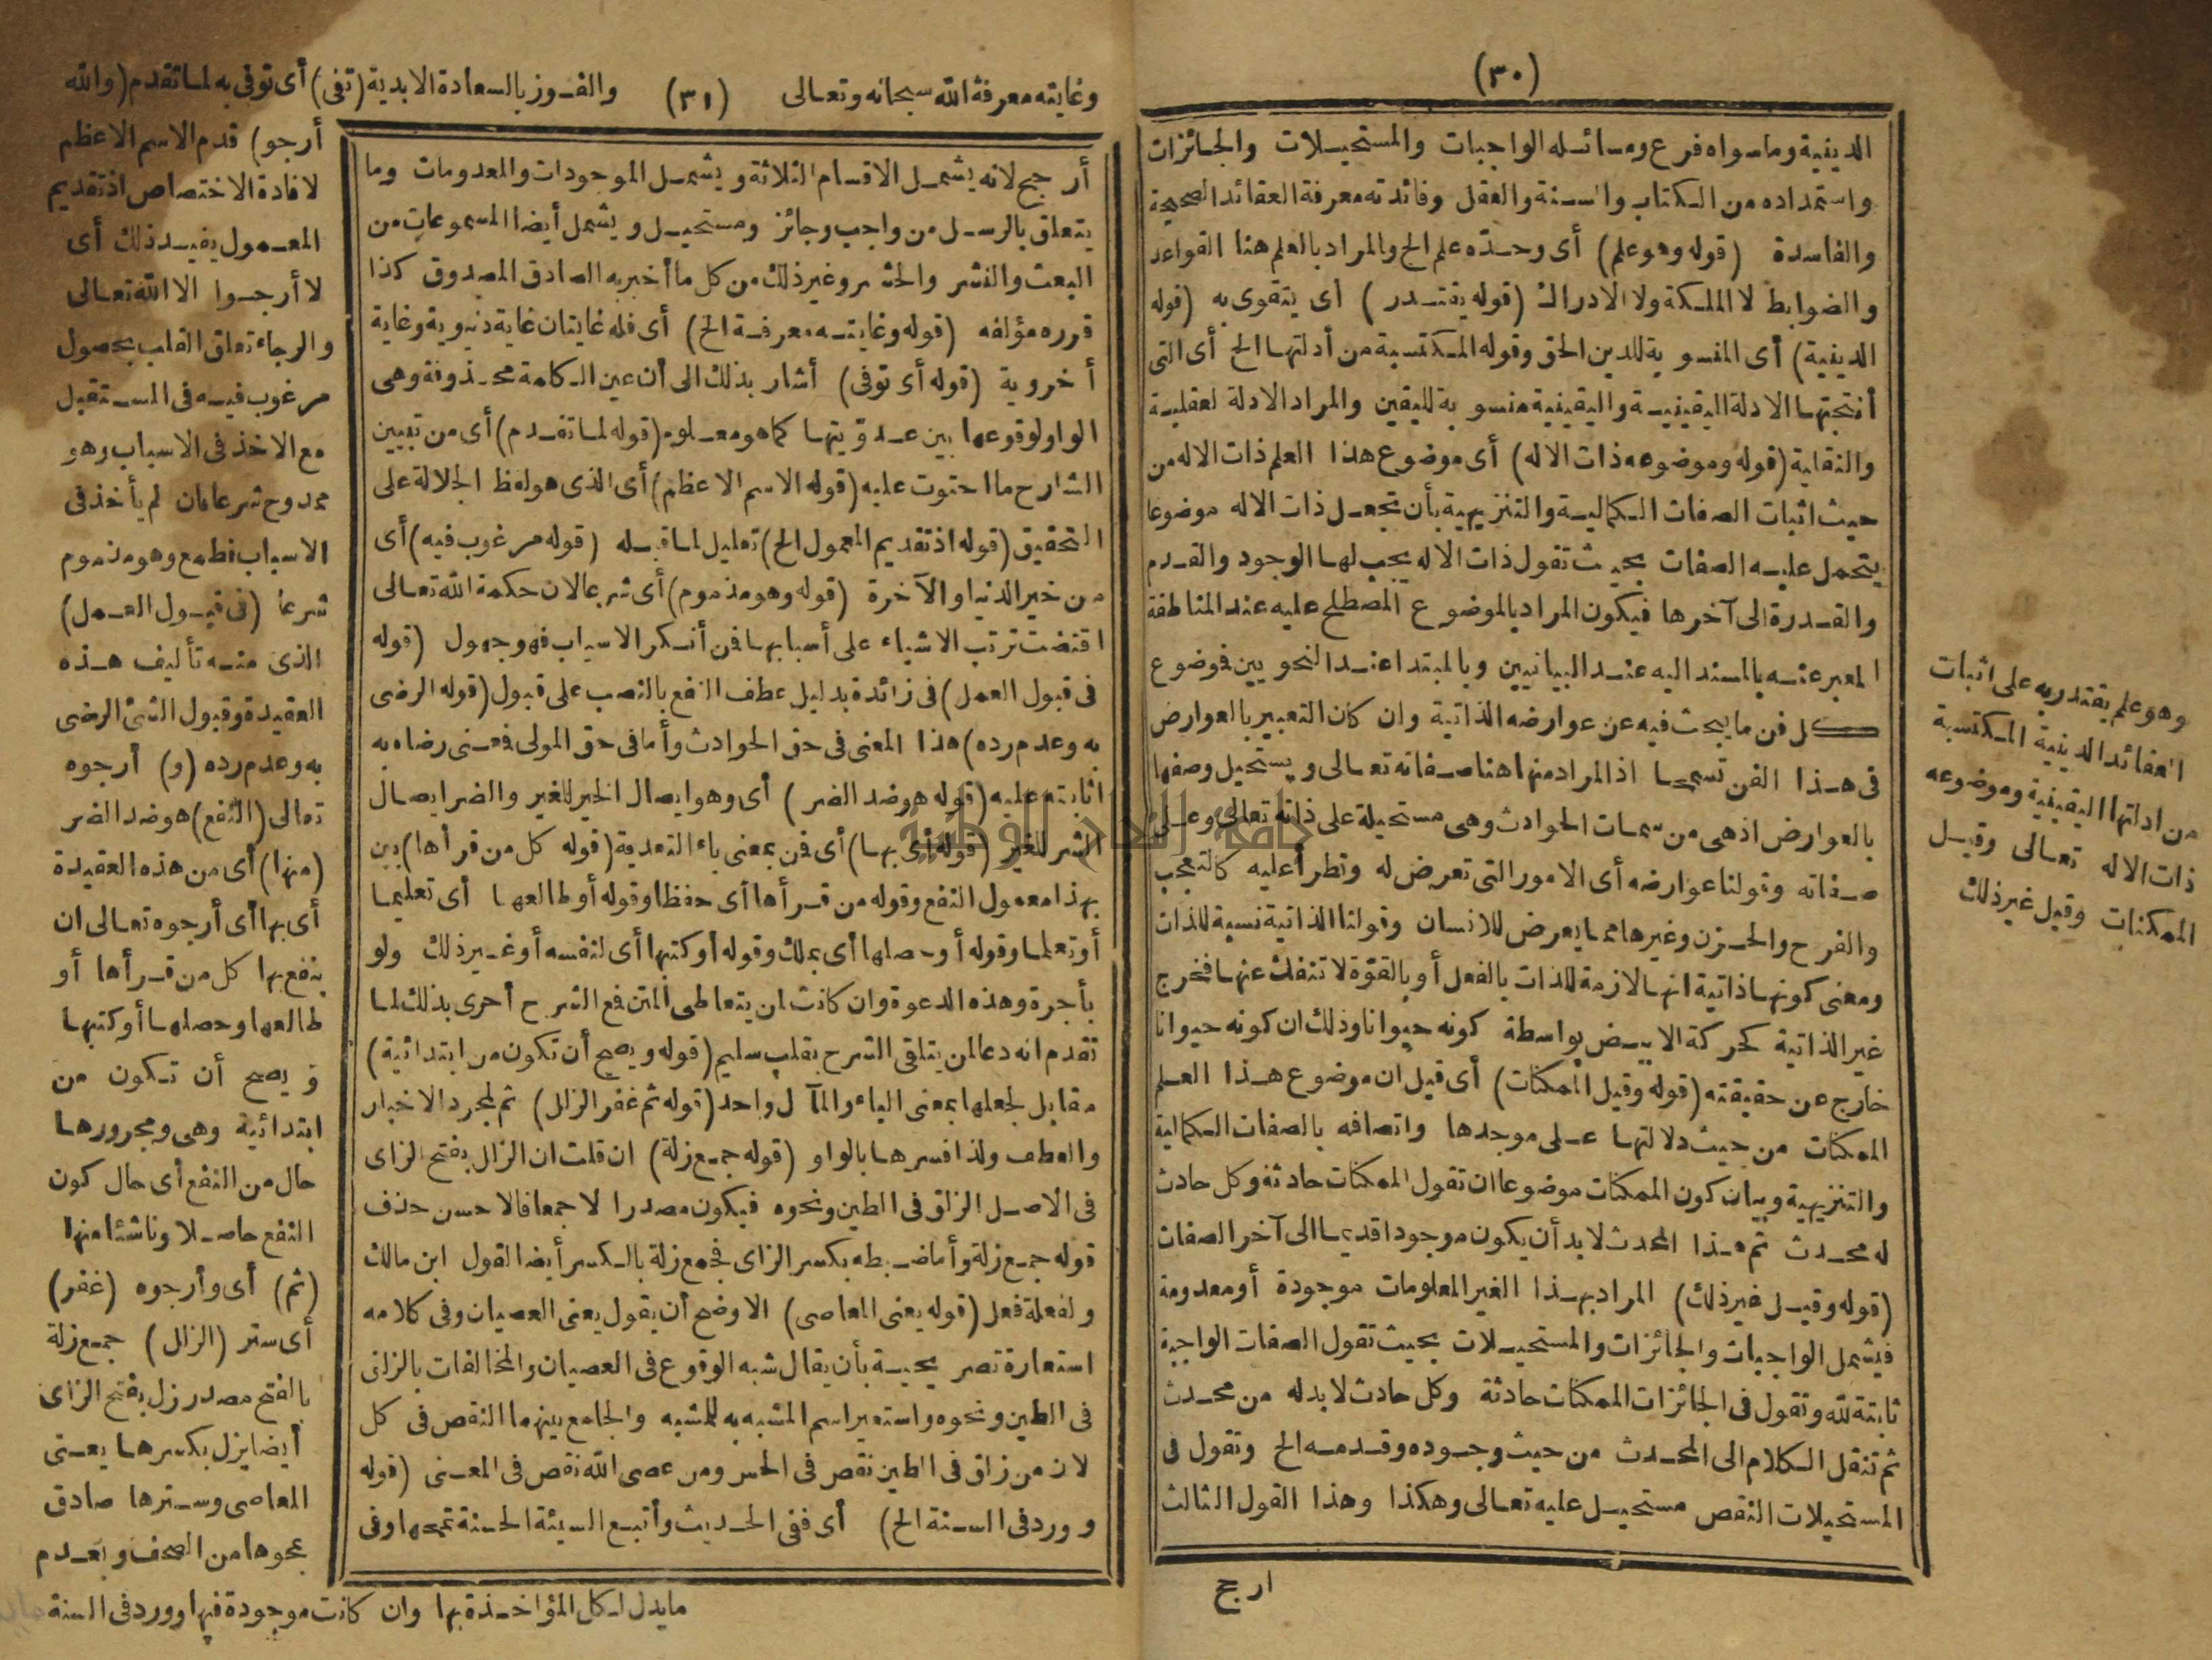 (٣٠)
الدينية وما سواه فرع ومسائله الواجبات والمستحيلات والجائزات
واستمداده من الكتاب والسنة والعقل وفائدته معرفة العقائد الصحيحة
والفاسدة (قوله وهو علم) أى وحده علم الخ والمراد بالعلم هنا القواعد
والضوابط لا الملكة ولا الادراك (قوله يقتدر) أى يتقوى به (قوله
الدينية) أى المنسوبة للدين الحق وقوله المكتسبة من أدلتها الخ أى التى
أنتجتها الادلة اليقينية واليقينية منسوبة لليقين والمراد الادلة لعقلية
والنقلية (قوله وموضوعه ذات الاله) أى موضوع هذا العلم ذات الاله من
حيث اثبات الصفات الكمالية والتنزيهية بأن تجعل ذات الاله موضوعا
يتحمل عليه الصفات بحيث تقول ذات الاله يجب لها الوجود والقدم
والقدرة الى آخرها فيكون المراد بالموضوع المصطلح عليه عند المناطقة
المعبر عنه بالمسند اليه عند البيانيين وبالمبتدا عند النحويين فوضوع
كل فن ما يبحث فيه عن عوارضه الذاتية وان كان التعبير بالعوارض
فى هذا الفن تسمحا اذ المراد منها هنا صفاته تعالى ويستحيل وصفها
بالعوارض اذ هى من سمات الحوادث وهى مستحيلة على ذاته تعالى وعلى
صفاته وقولنا عوارضه أى الامور التى تعرض له وتطرأ عليه كالتعجب
والفرح والحزن وغيرها مما يعرض للانسان وقولنا الذاتية نسبة للذات
ومعنى كونها ذاتية انها لازمة للذات بالفعل أو بالقوة لا تنفك عنها فخرج
غير الذاتية كحركة الابيض بواسطة كونه حيوانا وذلك ان كونه حيوانا
خارج عن حقيقته (قوله وقيل الممكنات) أى قيل ان موضوع هذا العلم
الممكنات من حيث دلالتها على موجدها واتصافه بالصفات الكمالية
والتنزيهية وبيان كون الممكنات موضوعا ان تقول الممكنات حادثة وكل حادث
له محدث ثم هذا المحدث لا بد أن يكون موجودا قديما الى آخر الصفات
(قوله وقيل غير ذلك) المراد بهذا الغير المعلومات موجودة أو معدومة
فيشمل الواجبات والجائزات والمستحيلات بحيث تقول الصفات الواجبة
ثابتة لله وتقول فى الجائزات الممكنات حادثة وكل حادث لا بد له من محدث
ثم تنقل الكلام الى المحدث من حيث وجوده وقدمه الخ وتقول فى
المستحيلات النقص مستحيل عليه تعالى وهكذا وهذا القول الثالث
ارجح
وهو علم يقتدر به على اثبات
العقائد الدينية المكتسبة
من ادلتها اليقينية وموضوعه
ذات الاله تعالى وقيل
الممكنات وقيل غير ذلك
وغايته معرفة الله سبحانه وتعالى (٣١) والفوز بالسعادة الابدية (تفى) أى توفى به لما تقدم (والله
أرجح لانه يشمل الاقسام الثلاثة ويشمل الموجودات والمعدومات وما
يتعلق بالرسل من واجب وجائز ومستحيل ويشمل أيضا المسموعات من
البعث والنشر والحشر وغير ذلك من كل ما أخبر به الصادق المصدوق كذا
قرره مؤلفه (قوله وغايته معرفة الخ) أى فله غايتان غاية دنيوية وغاية
أخروية (قوله أى توفى) أشار بذلك الى أن عين الكلمة محذوفة وهى
الواو لوقوعها بين عدوتيها كما هو معلوم (قوله لما تقدم) أى من تبيين
الشارح ما احتوت عليه (قوله الاسم الاعظم) أى الذى هو لفظ الجلالة على
التحقيق (قوله اذ تقديم المعمول الخ) تعليل لما قبله (قوله مرغوب فيه) أى
من خير الدنيا والآخرة (قوله وهو مذموم) أى شرعا لان حكمة الله تعالى
اقتضت ترتب الاشياء على أسبابها فمن أنكر الاسباب فهو جهول (قوله
فى قبول العمل) فى زائدة بدليل عطف النفع بالنصب على قبول (قوله الرضى
به وعدم رده) هذا المعنى فى حق الحوادث وأما فى حق المولى فمعنى رضاه به
اثابته عليه (قوله هو ضد الضر) أى وهو ايصال الخير للغير والضر ايصال
الشر للغير (قوله أى بها) أى فمن بمعنى باء التعدية (قوله كل من قرأها) بين
بهذا معمول النفع وقوله من قرأها أى حفظا وقوله أو طالعها أى تعليما
أو تعلما وقوله أو حصلها أى بملك وقوله أو كتبها أى لنفسه أو غير ذلك ولو
بأجرة وهذه الدعوة وان كانت لمن يتعاطى المتن فع الشرح أحرى بذلك لما
تقدم انه دعا لمن يتلقى الشرح بقلب سليم (قوله ويصح أن تكون من ابتدائية)
مقابل لجعلها بمعنى الباء والمآل واحد (قوله ثم غفر الزلل) ثم لمجرد الاخبار
والعطف ولذا فسرها بالواو (قوله جمع زلة) ان قلت ان الزلل بفتح الزاى
فى الاصل الزلق فى الطين ونحوه فيكون مصدرا لا جمعا فالاحسن حذف
قوله جمع زلة وأما ضبطه بكسر الزاى فجمع زلة بالكسر أيضا لقول ابن مالك
ولفعلة فعل (قوله يعنى المعاصى) الاوضح أن يقول يعنى العصيان وفى كلامه
استعارة تصريحية بأن يقال شبه الوقوع فى العصيان والمخالفات بالزلق
فى الطين ونحوه واستعير اسم المشبه به للمشبه والجامع بينهما النقص فى كل
لان من زلق فى الطين نقص فى الحس ومن عصى الله نقص فى المعنى (قوله
وورد فى السنة الخ) أى ففى الحديث وأتبع السيئة الحسنة تمحها وفى
أرجو) قدم الاسم الاعظم
لافادة الاختصاص اذ تقديم
المعمول يفيد ذلك أى
لا أرجوا الا الله تعالى
والرجاء تعلق القلب بحصول
مرغوب فيه فى المستقبل
مع الاخذ فى الاسباب وهو
ممدوح شرعا فان لم يأخذ فى
الاسباب فطمع وهو مذموم
شرعا (فى قبول العمل)
الذى منه تأليف هذه
العقيدة وقبول الشئ الرضى
به وعدم رده (و) أرجوه
تعالى (النفع) هو ضد الضر
(منها) أى من هذه العقيدة
أى بها أى أرجوه تعالى ان
ينفع بها كل من قرأها أو
طالعها وحصلها أو كتبها
ويصح أن تكون من
ابتدائية وهى ومجرورها
حال من النفع أى حال كون
النفع حاصلا وناشئا منها
(ثم) أى وأرجوه (غفر)
أى ستر (الزلل) جمع زلة
بالفتح مصدر زل بفتح الزاى
أيضا يزل بكسرها يعنى
المعاصى وسترها صادق
بمحوها من الصحف وبعدم
المؤاخذة بها وان كانت موجودة فيها وورد فى السنة ما يدل لكل
جامعة النجاح الوطنية